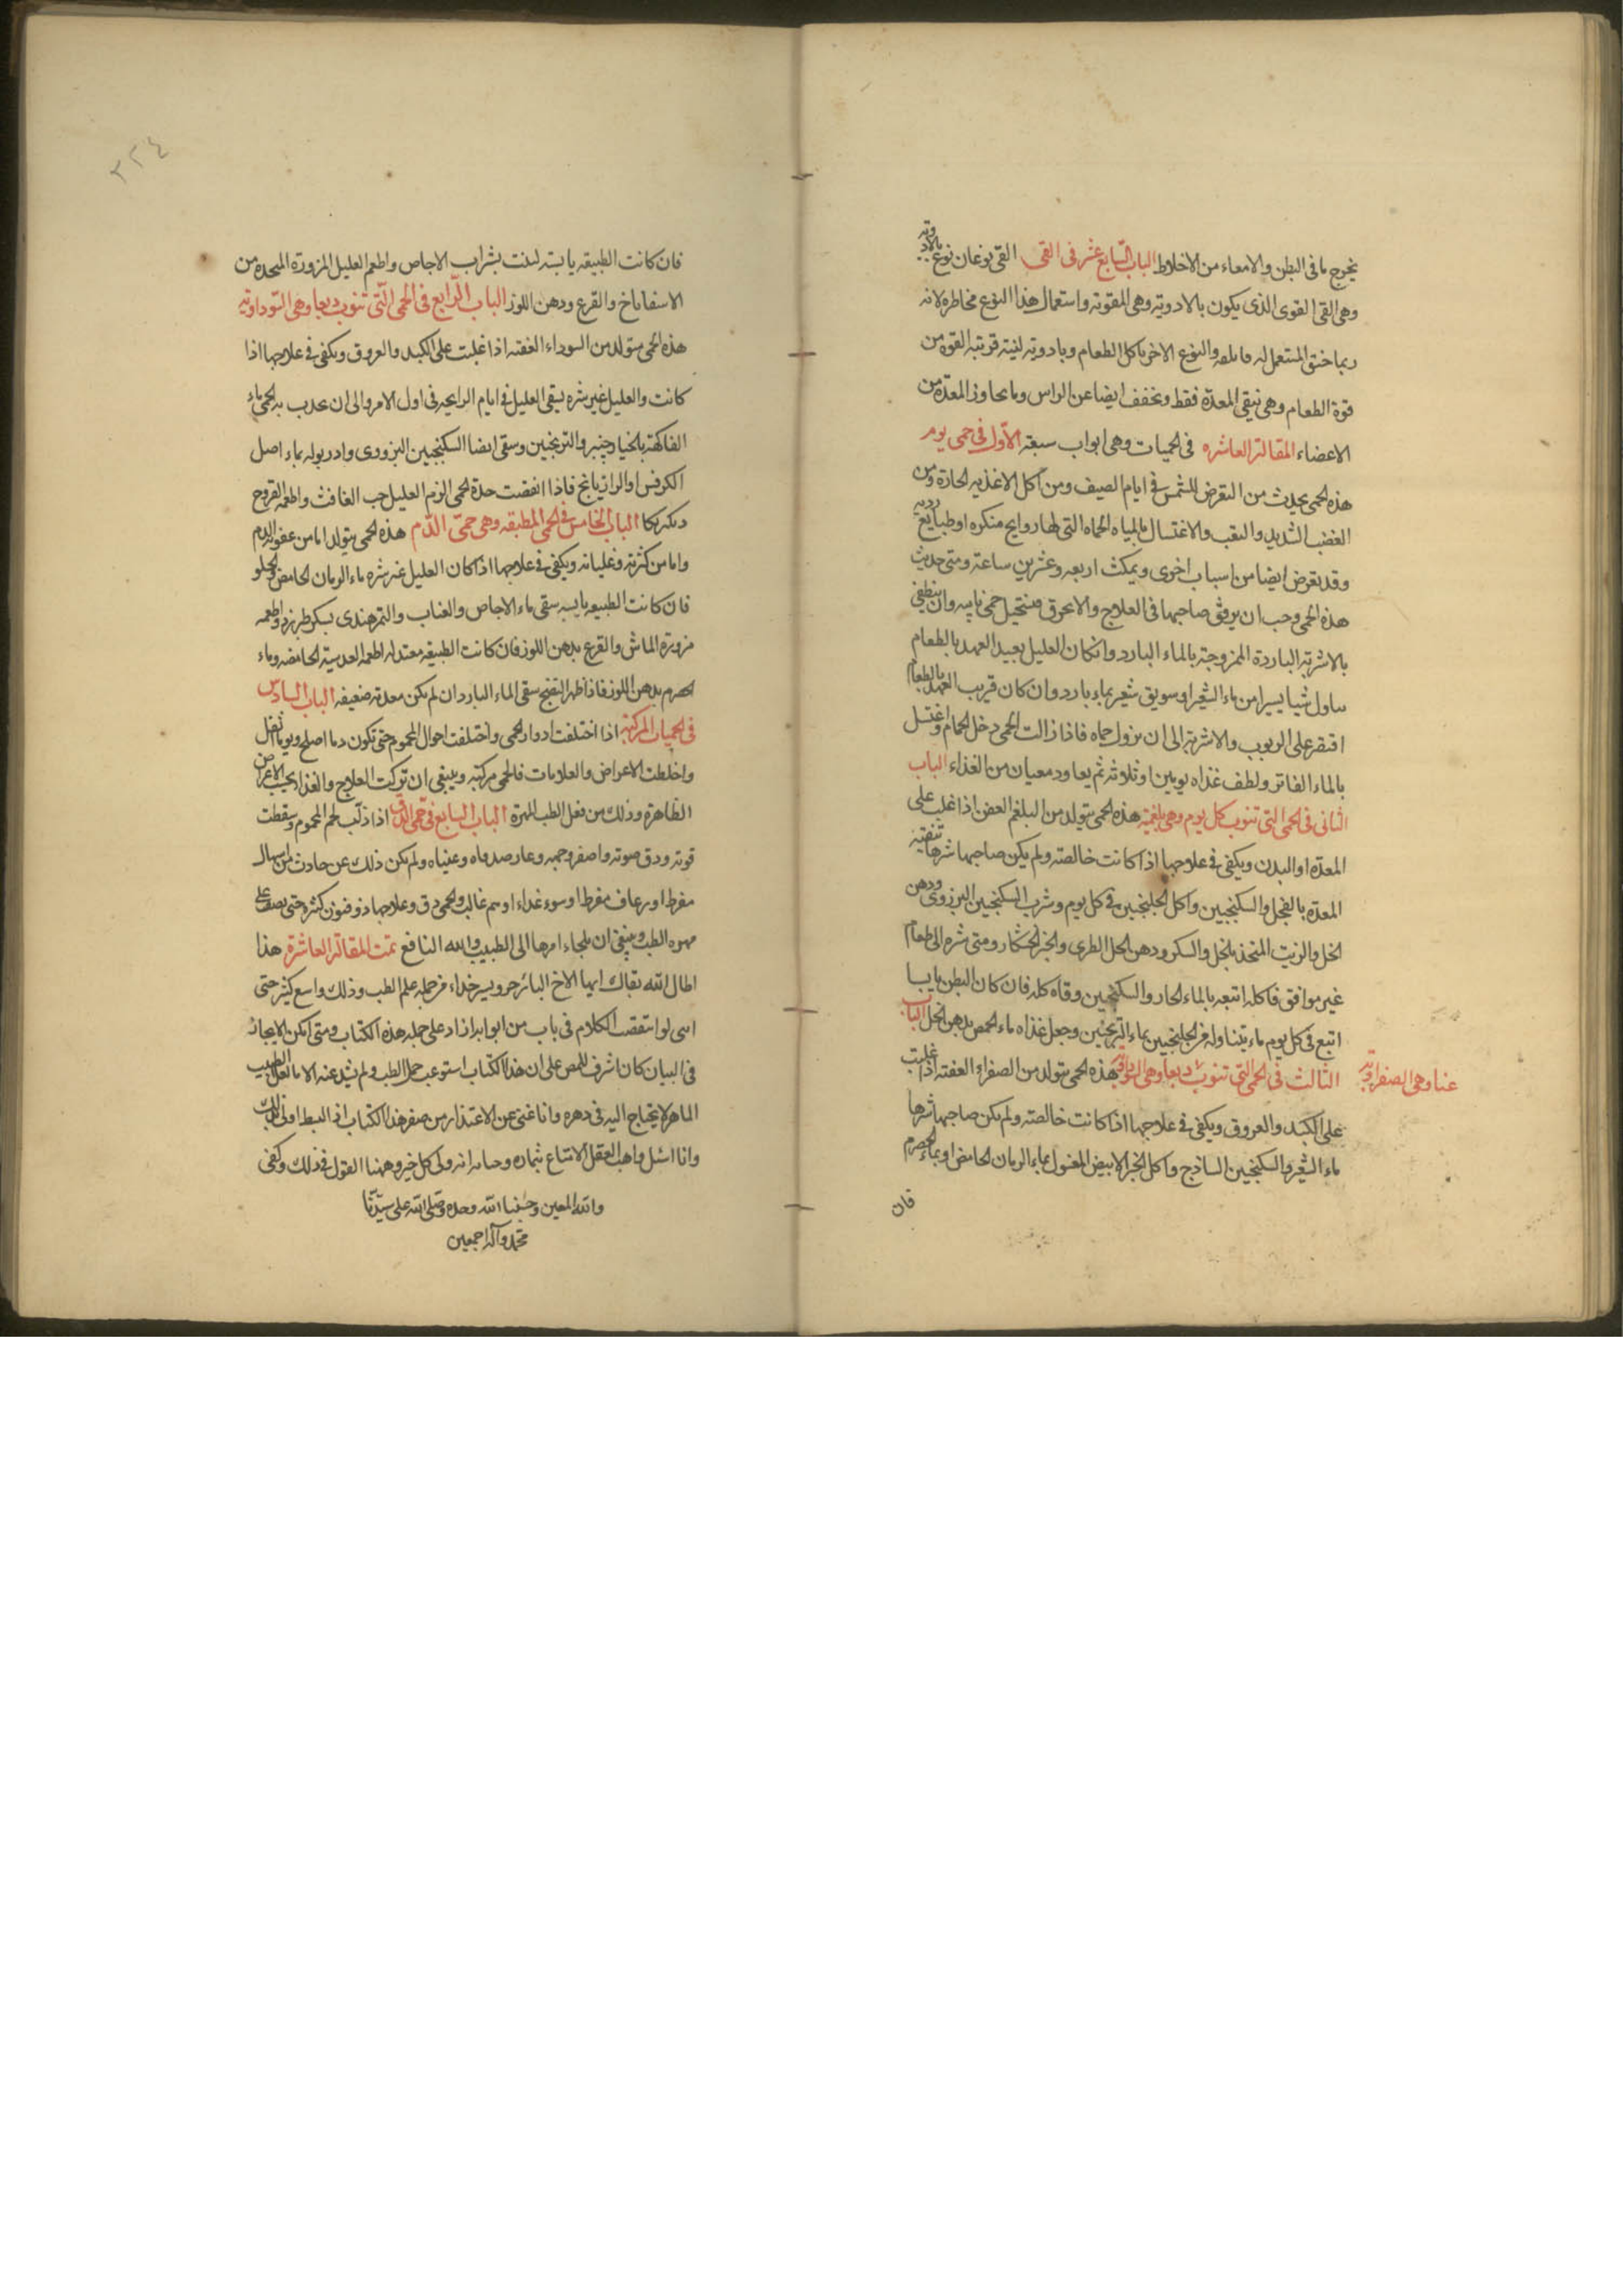 يخرج ما فى البطن والامعاء من الاخلاط الباب السابع عشر فى القى القى نوعان نوع بالادوية
وهى القى القوى الذى يكون بالادوية وهى المقوته واستعمال هذا النوع مخاطره لانه
ربما خنق المستعمل له والنوع الاخر باكل الطعام وبادويه لينه قريبة القوه من
قوة الطعام وهى تنقى المعدة فقط وتخفف ايضا عن الراس وما يجاوز المعدة من
الاعضاء المقالة العاشره فى الحميات وهى ابواب سبعة الاول فى حمى يوم
هذه الحمى يحدث من التعرض للشمس فى ايام الصيف ومن اكل الاغذيه الحارة ومن
الغضب الشديد والتعب والاغتسال بالمياه الحماه التى لها روايح منكره او طبايع رديه
وقد يعرض ايضا من اسباب اخرى ويمكث اربعه وعشرين ساعة ومتى حدث
هذه الحمى وجب ان يرفق صاحبها فى العلاج والا عرق فتستحيل حمى ثانيه وان ينطفى
بالاشربة الباردة الممزوجة بالماء البارد وان كان العليل بعيد العهد بالطعام
تناول شيا يسيرا من ماء الشعير او سويق شعير بماء بارد وان كان قريب العهد بالطعام
اقتصر على الربوب والاشربة الى ان يزول حماه فاذا زالت الحمى دخل الحمام واغتسل
بالماء الفاتر ولطف غذاه يومين او ثلاثه ثم يعاود من الغذاء الباب
الثانى فى الحمى التى تنوب كل يوم وهى بلغميه هذه الحمى يتولد من البلغم العفن اذا غلب على
المعدة او البدن ويكفى فى علاجها اذا كانت خالصه ولم يكن صاحبها شرها تنقية
المعدة بالفجل والسكنجبين واكل الجلنجبين فى كل يوم وشرب السكنجبين البزورى ودهن
الخل والزيت المتخذ بالخل والسكر ودهن الحل الطرى والخبز الخشكار ومتى شره الى طعام
غير موافق فاكله اتبعه بالماء الحار والسكنجبين وقاه كله فان كان البطن يابسا
اتبع فى كل يوم ما يتناوله من الجلنجبين بماء الترنجبين وجعل غذاه ماء الحمص بدهن الحل الباب
الثالث فى الحمى التى تنوب هذه الحمى يتولد من الصفراء العفنه اذا غلبت
غبا وهى الصفراويه
على الكبد والعروق ويكفى فى علاجها اذا كانت خالصه ولم يكن صاحبها شرها
ماء الشعير والسكنجبين الساذج واكل الخبز الابيض المغسول بماء الرمان الحامض او بماء الحصرم
فان
٢٢٤
فان كانت الطبيعه يابسة لينت بشراب الاجاص واطعم العليل المزورة المتخذه من
الاسفاناخ والقرع ودهن اللوز الباب الرابع فى الحمى التى تنوب ربعا وهى السوداوية
هذه الحمى يتولد من السوداء العفنه اذا غلبت على الكبد والعروق ويكفى فى علاجها اذا
كانت والعليل غير شره يسقى العليل فى ايام الراحه فى اول الامر والى ان الحمى ماء
الفاكهة بالخيارجنبر والترنجبين وسقى ايضا السكنجبين البزورى وادر بوله بماء اصل
الكرفس او الرازيانج فاذا انقضت حدة الحمى الزم العليل حب الغافث واطعمه الفروج
الباب الخامس فى الحمى المطبقه وهى حمى الدم هذه الحمى يتولد اما من عفونه الدم
واما من كثرته وغليانه ويكفى فى علاجها اذا كان العليل غير شره ماء الرمان الحامض والحلو
فان كانت الطبيعه يابسه سقى ماء الاجاص والعناب والتمر هندى بسكر طبرزد واطعمه
مزورة الماش والقرع بدهن اللوز فان كانت الطبيعه معتدله اطعمه العدسية الحامضه وماء
الحصرم بدهن اللوز فاذا ظهر النضج سقى الماء البارد ان لم يكن معدته ضعيفه الباب السادس
فى الحميات المركبة اذا اختلفت ادوار الحمى واختلفت احوال المحموم حتى تكون يوما اصلح ويوما اثقل
واختلطت الاعراض والعلامات فالحمى مركبه وينبغى ان تركب العلاج والغذاء بحسب الاعراض
الظاهرة وذلك من فعل الطب المهرة الباب السابع فى حمى الدق اذا ذاب لحم المحموم وسقطت
قوته ودق صوته واصفر وجهه وغار صدغاه وعيناه ولم يكن ذلك عن حادث من اسهال
مفرط او رعاف مفرط او سوء غذاء او هم غالب والحمى دق وعلاجها ذو فنون كثره حتى يصعب على
مهره الطب وينبغى ان يلجاء امرها الى الطبيب والله النافع تمت المقالة العاشرة هذا
اطال الله بقاك ايها الاخ جزو يسير من جمله علم الطب وذلك واسع كثير حتى
اننى لو استقصت الكلام فى باب من ابوابه ازاد على جمله هذه الكتاب ومتى امكن الايجاز
فى البيان كان اشرف على ان هذا الكتاب استوعب جمل الطب ولم يشذ عنه الا ما لعل الطبيب
الماهر لا يحتاج اليه فى دهره وانا غنى عن الاعتذار من صغر هذا الكتاب اذ البسط اولى بذلك
وانا اسئل واهب العقل الامتناع بثماره انه ولى كل خير وههنا القول فى ذلك وكفى
والله المعين وحسبنا الله وحده وصلى الله على سيدنا
محمد وآله اجمعين